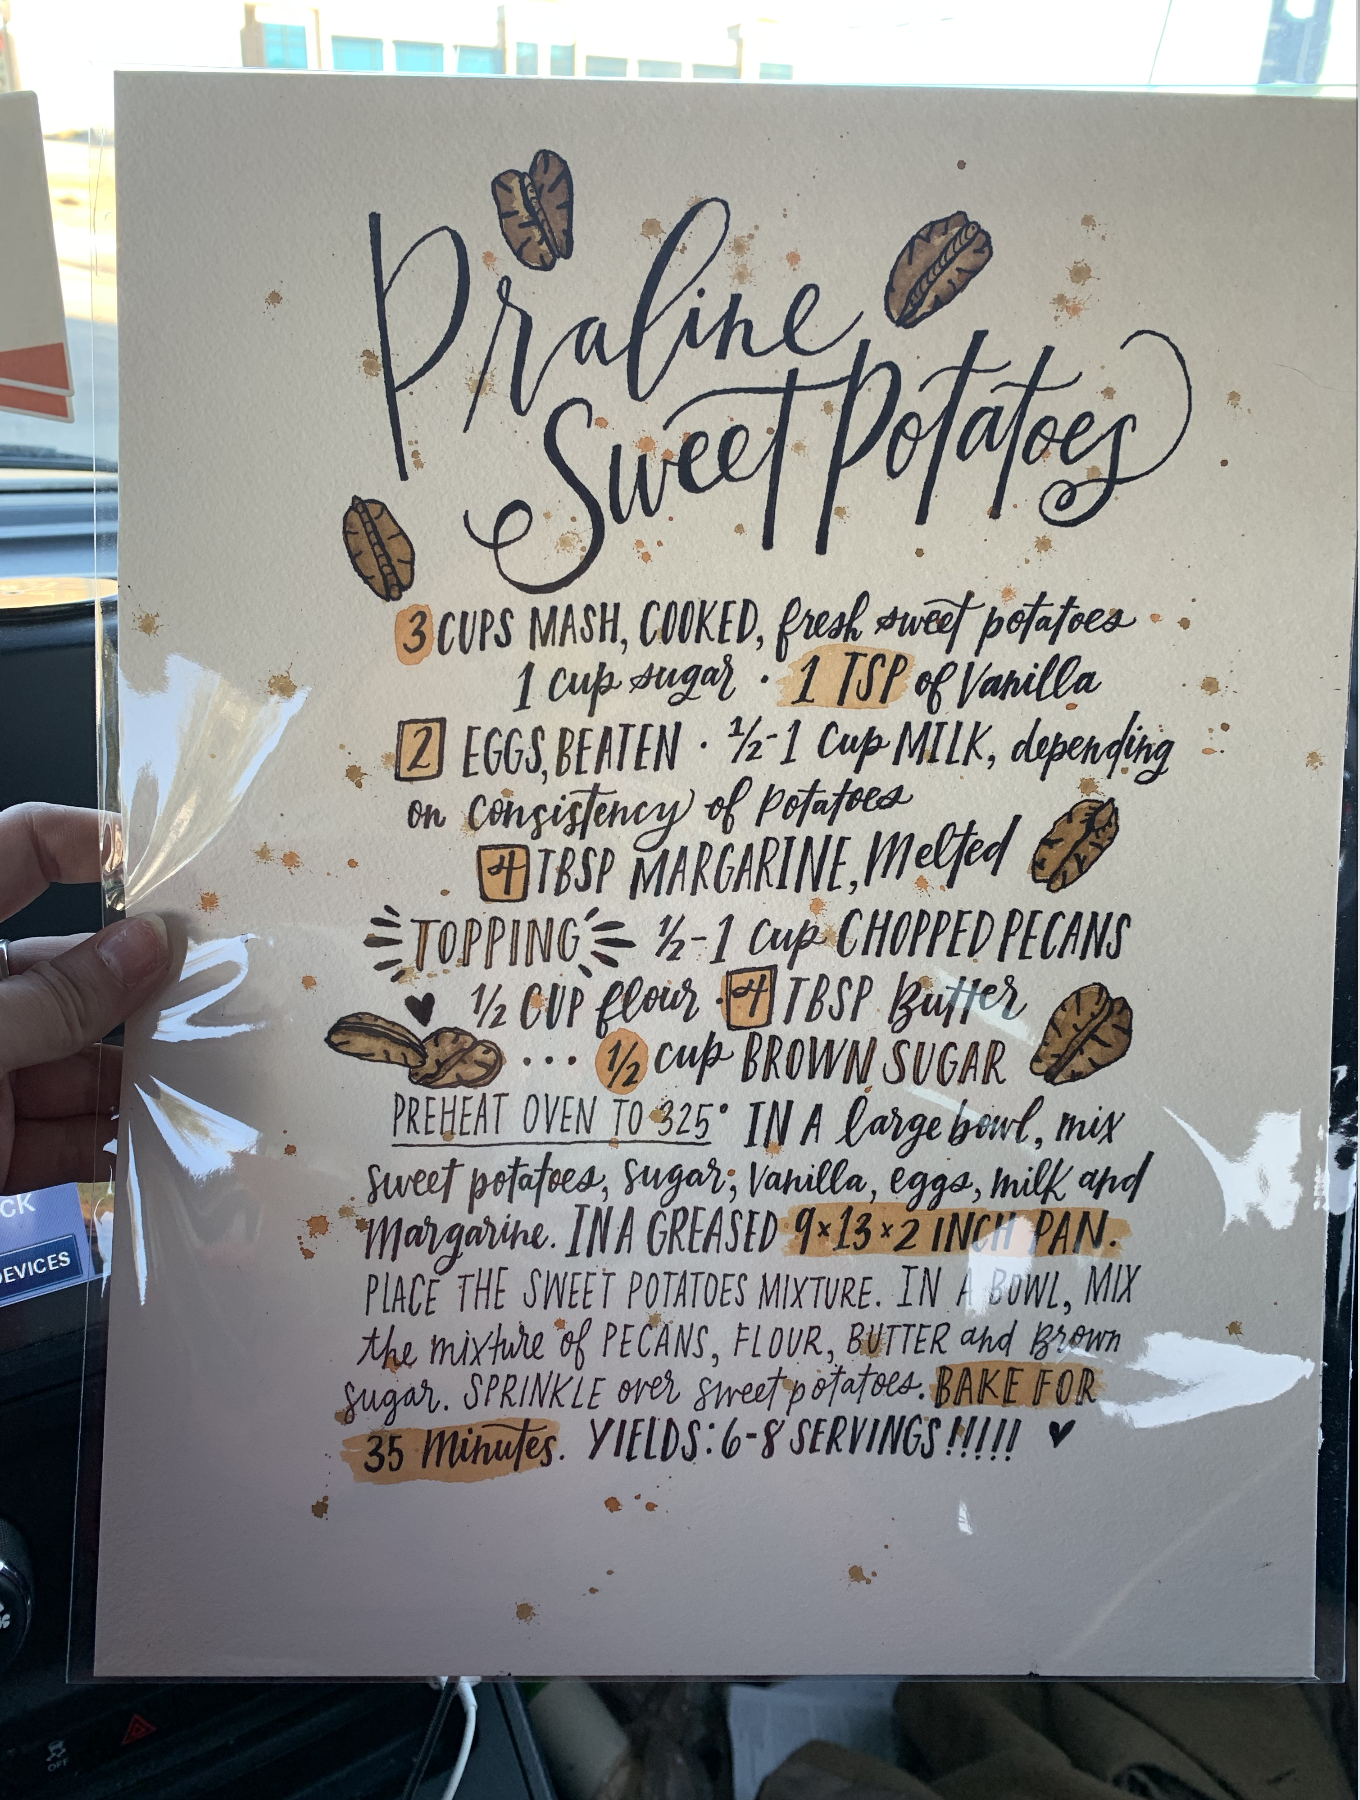 Praline
Sweet Potatoes
3 CUPS MASH, COOKED, fresh sweet potatoes
1 cup sugar · 1 TSP of Vanilla
2 EGGS, BEATEN · ½-1 Cup MILK, depending
on consistency of potatoes
4 TBSP MARGARINE, Melted
TOPPING ½-1 cup CHOPPED PECANS
½ CUP flour · 4 TBSP Butter
... ½ cup BROWN SUGAR
PREHEAT OVEN TO 325° IN A large bowl, mix
sweet potatoes, sugar, vanilla, eggs, milk and
Margarine. IN A GREASED 9×13×2 INCH PAN.
PLACE THE SWEET POTATOES MIXTURE. IN A BOWL, MIX
the mixture of PECANS, FLOUR, BUTTER and Brown
sugar. SPRINKLE over sweet potatoes. BAKE FOR
35 Minutes. YIELDS: 6-8 SERVINGS!!!!!
CK
DEVICES
OFF